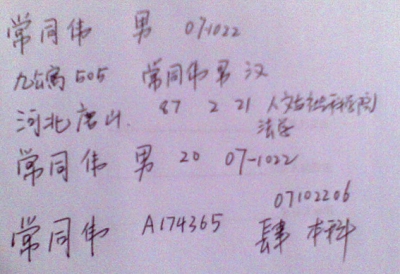 常同伟 男 07-1022
九公寓505 常同伟 男 汉
河北唐山. 87 2 21 人文与社会科学学院
法学
常同伟 男 20 07-1022
07102206
常同伟 A174365 肆 本科